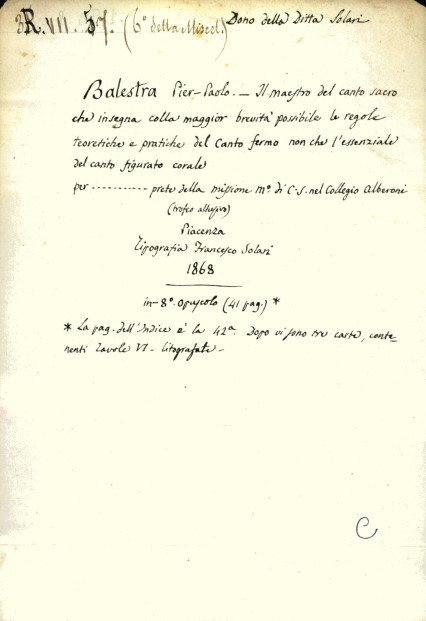 R. VII. 57. (6º della Miscel.) Dono della Ditta Solari
Balestra Pier-Paolo. — Il maestro del canto sacro
che insegna colla maggior brevità possibile le regole
teoretiche e pratiche del Canto fermo non che l'essenziale
del canto figurato corale
per ----------- prete della missione mº. di C. S. nel Collegio Alberoni
(trofeo allusivo)
Piacenza
Tipografia Francesco Solari
1868
in-8º. Opuscolo (41 pag.) *
* La pag. dell'Indice è la 42ª. Dopo vi sono tre carte, conte-
nenti Tavole VI - litografate -
C